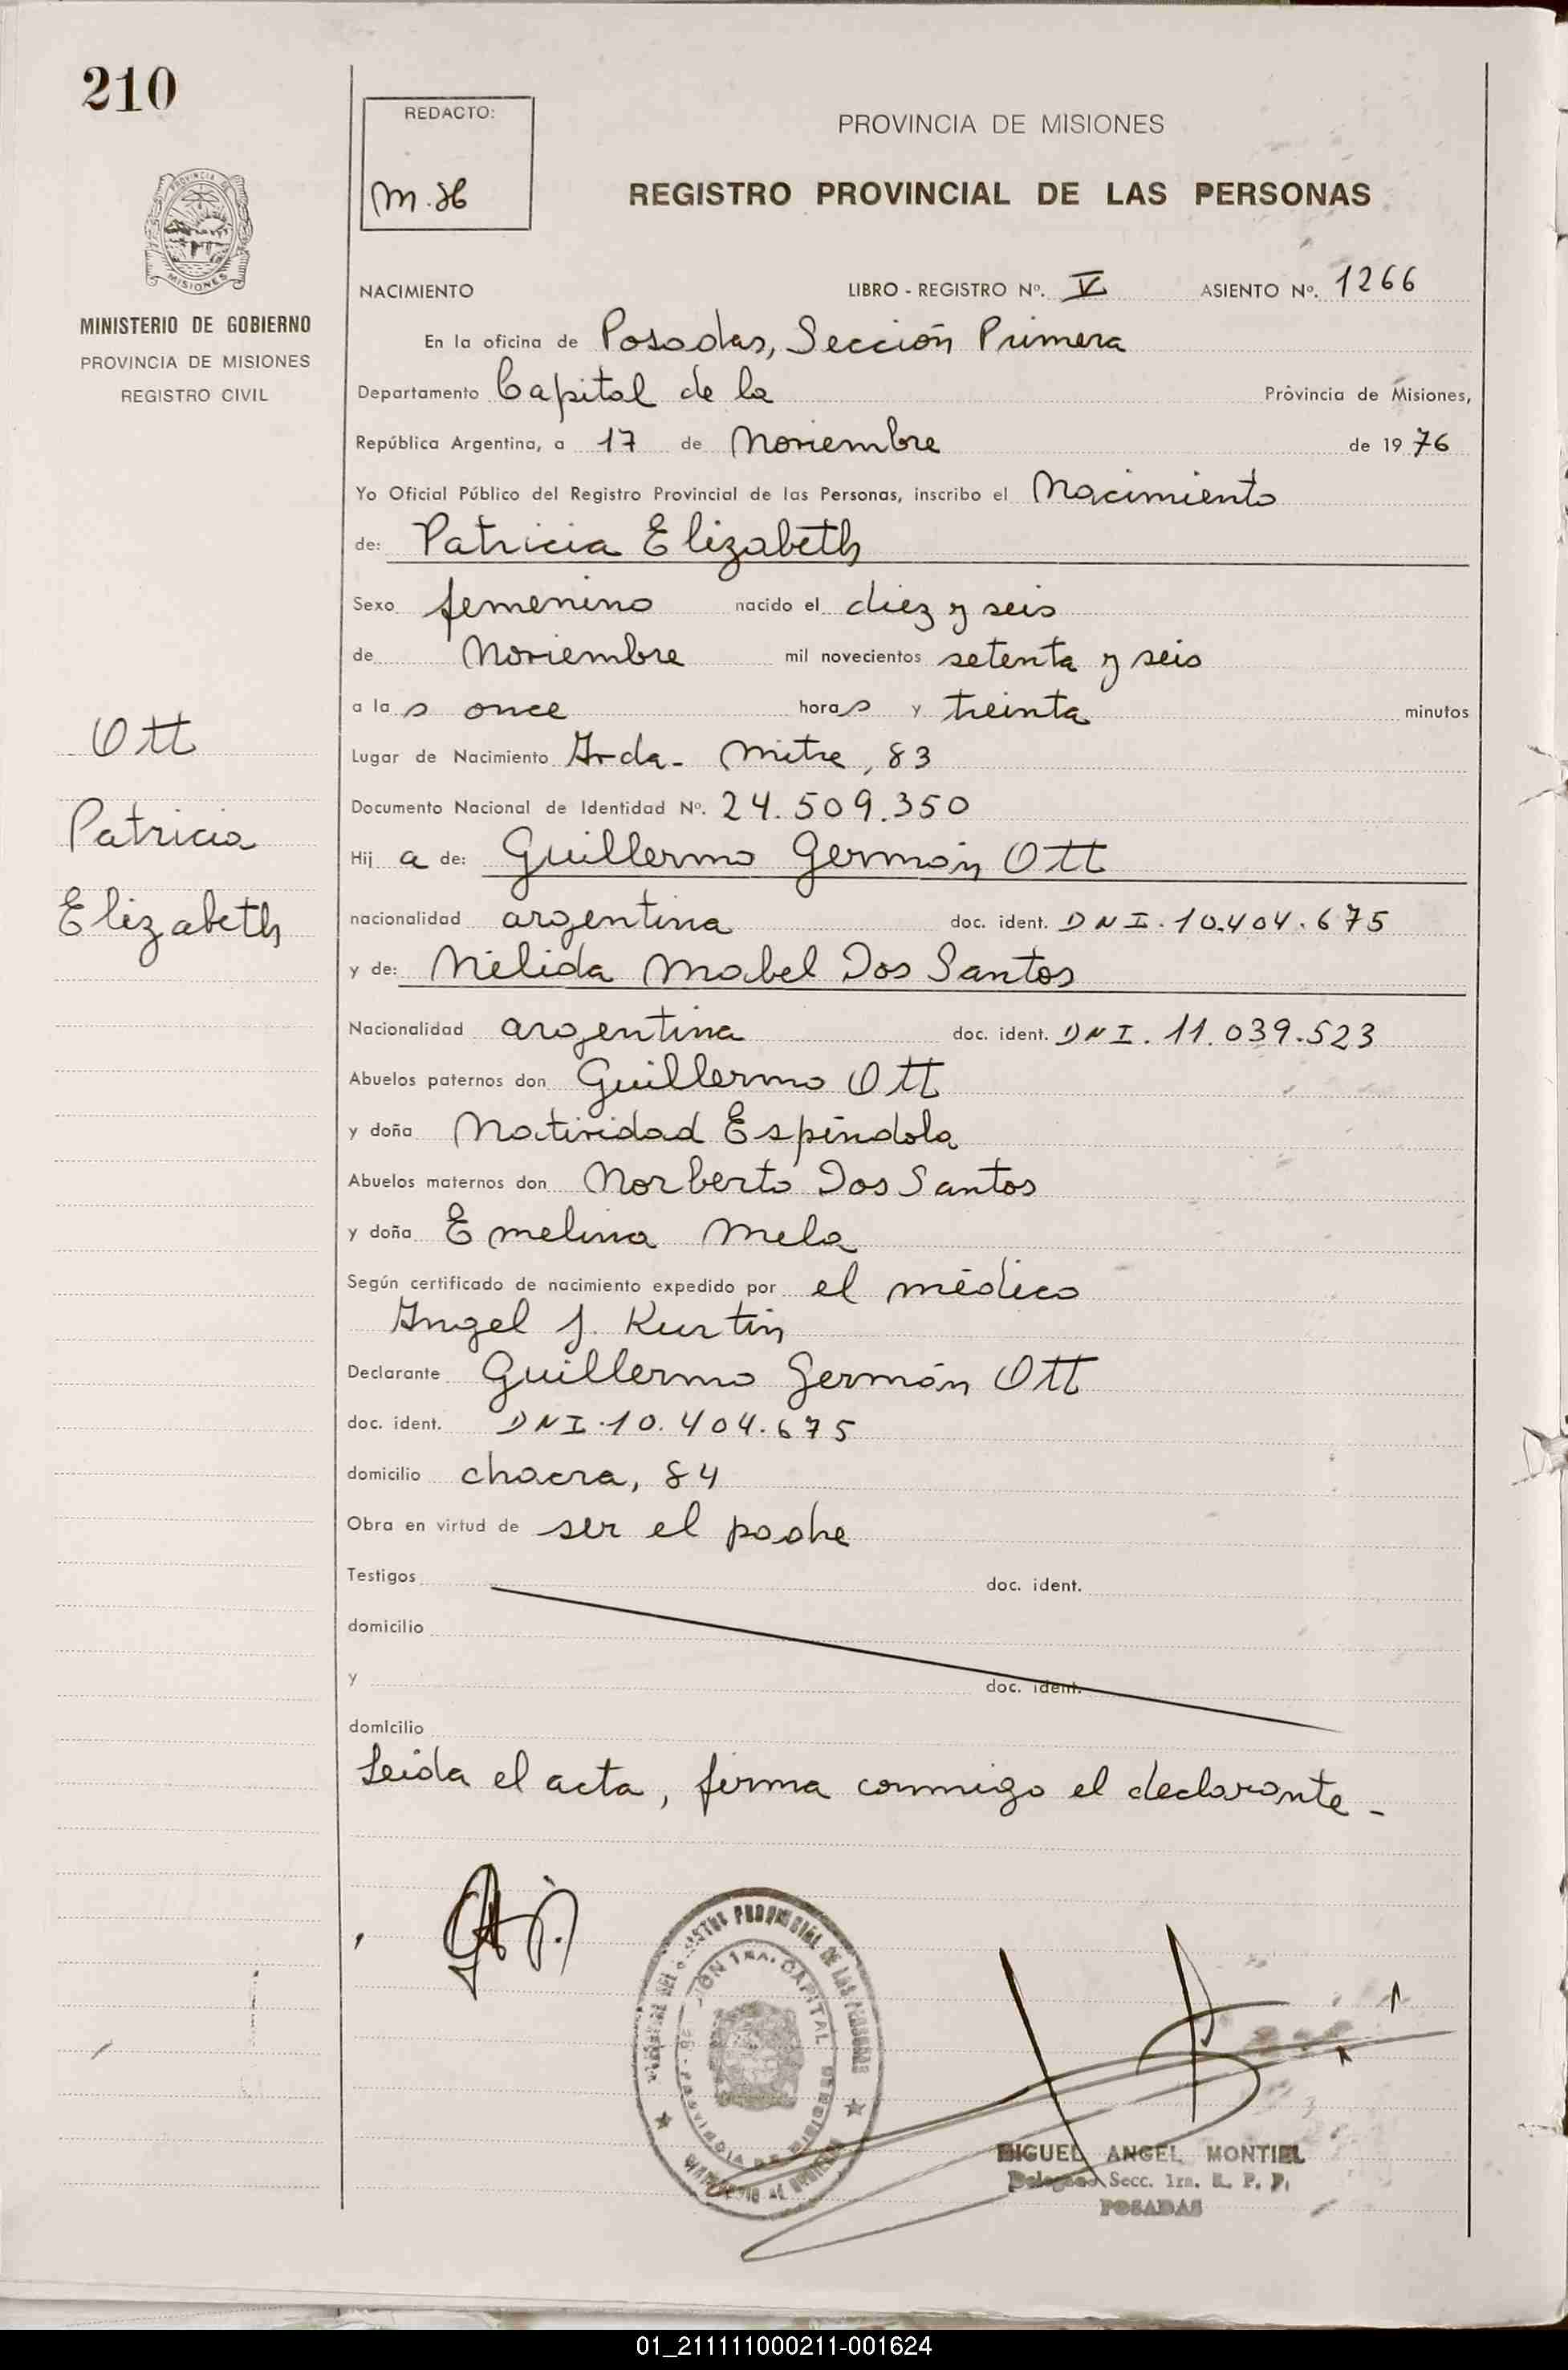 210
REDACTO:
M. H
PROVINCIA DE MISIONES
REGISTRO PROVINCIAL DE LAS PERSONAS
PROVINCIA DE
MISIONES
MINISTERIO DE GOBIERNO
PROVINCIA DE MISIONES
REGISTRO CIVIL
NACIMIENTO LIBRO - REGISTRO Nº. V ASIENTO Nº. 1266
En la oficina de Posadas, Sección Primera
Departamento Capital de la Provincia de Misiones,
República Argentina, a 17 de Noviembre de 1976
Yo Oficial Público del Registro Provincial de las Personas, inscribo el Nacimiento
de: Patricia Elizabeth
Sexo femenino nacido el diez y seis
de Noviembre mil novecientos setenta y seis
a las once horas y treinta minutos
Ott
Patricia
Elizabeth
Lugar de Nacimiento Avda- Mitre, 83
Documento Nacional de Identidad Nº. 24.509.350
Hija de: Guillermo Germán Ott
nacionalidad argentina doc. ident. DNI. 10.404.675
y de: Nélida Mabel Dos Santos
Nacionalidad argentina doc. ident. DNI. 11.039.523
Abuelos paternos don Guillermo Ott
y doña Natividad Espíndola
Abuelos maternos don Norberto Dos Santos
y doña Emelina Mela
Según certificado de nacimiento expedido por el médico
Angel J. Kurtin
Declarante Guillermo Germán Ott
doc. ident. DNI. 10.404.675
domicilio chacra, 84
Obra en virtud de ser el padre
Testigos doc. ident.
domicilio
y doc. ident.
domicilio
Leída el acta, firma conmigo el declarante-
PROVINCIAL DE LAS PERSONAS
1RA. CAPITAL
MIGUEL ANGEL MONTIEL
Delegado Secc. 1ra. R. P. P.
POSADAS
01_211111000211-001624